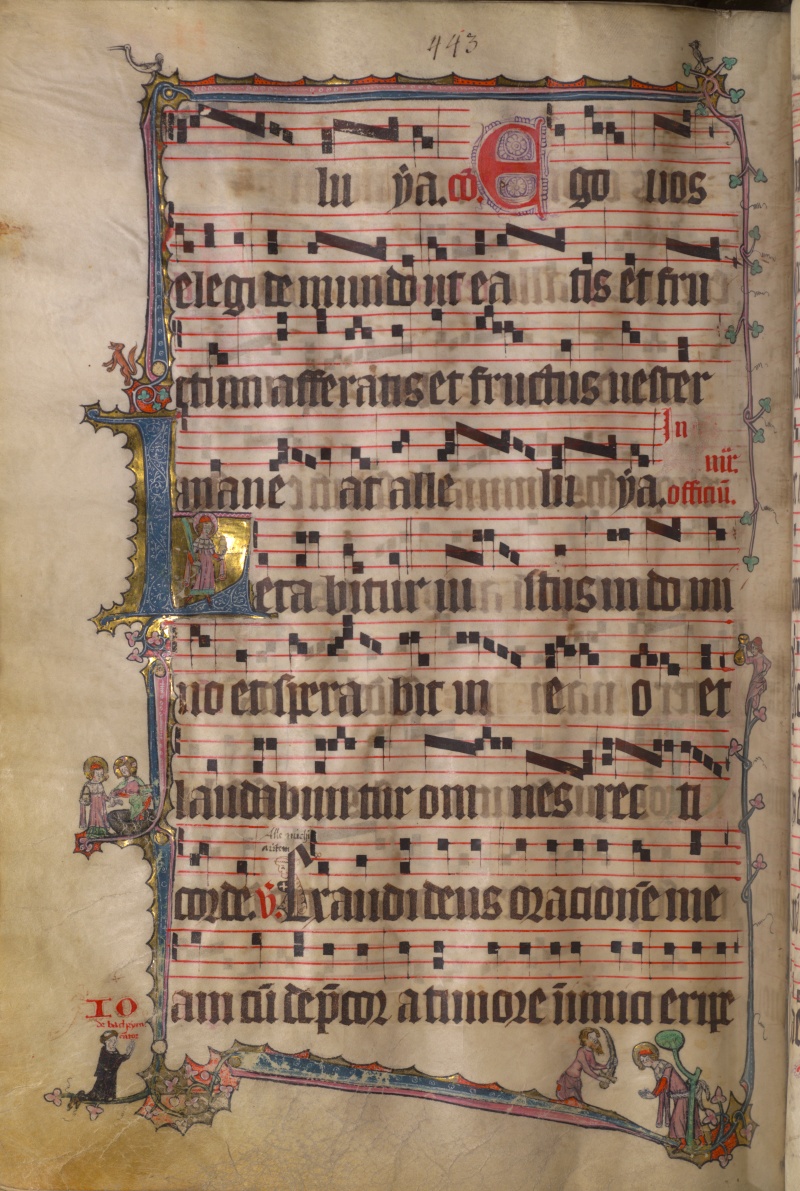 443
lu ya. co. Ego uos
elegi de mundo ut ea tis et fru
ctum afferatis et fructus uester
In
maneat alle lu ya. officiu.
Letabitur iu stus in do mi
no et spera bit in e o et
laudabun tur om nes rec ti
corde. v. Exaudi deus oracionē me
am cū dep̄cor a timore inimici eripe
IO